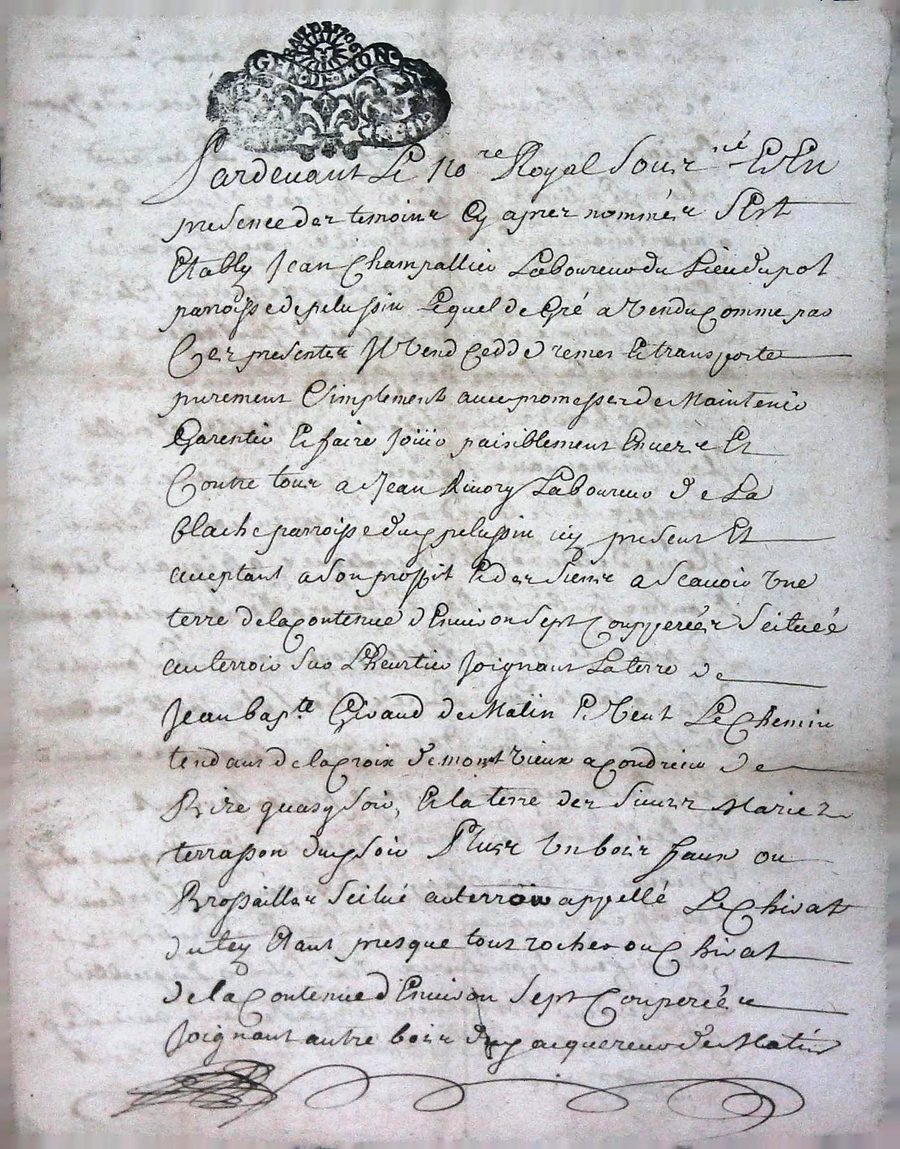 GEN. DE LION
Pardevant Le no.re Royal Sous.né Et En
presence des temoins Cy apres nommés S'Est
Etably Jean Champallier Laboureur du Lieu du pol
parroisse de pelussin Lequel de Gré a Vendu Comme par
Ces presentes Il Vend Cedde remes Et transporte
purement Et simplement avec promesses de Maintenir
Garentir Et faire Joüir paisiblement Envers Et
Contre tous a Jean Rivory Laboureur de La
blache parroisse dud pelussin icy present Et
aceptant a son proffit Et des Siens a Scavoir Une
terre de la Contenue d'Environ Sept Coupperées Scituée
au terroir Sur L'heurtier Joignant La terre de
Jean bap.te Giraud de Matin Et Vent Le Chemin
tendans de la Croix de montvieux a Condrieu de
Bize quasy Soir, Et la terre des Sieurs Maries
terrasson dud Soir Plus Un bois faux ou
Brossailles Scitué au terroir appellé Le Chirat
du tey Etant presque tous rocher ou Chirat
de la Contenue d'Environ Sept Couperées
Joignant autre bois dud acquereur de Matin